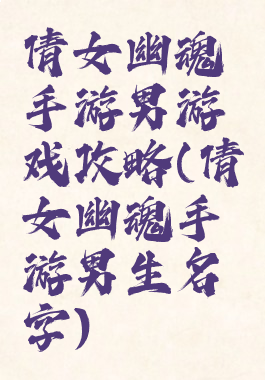 倩女幽魂
手游男游
戏攻略(倩
女幽魂手
游男生名
字)